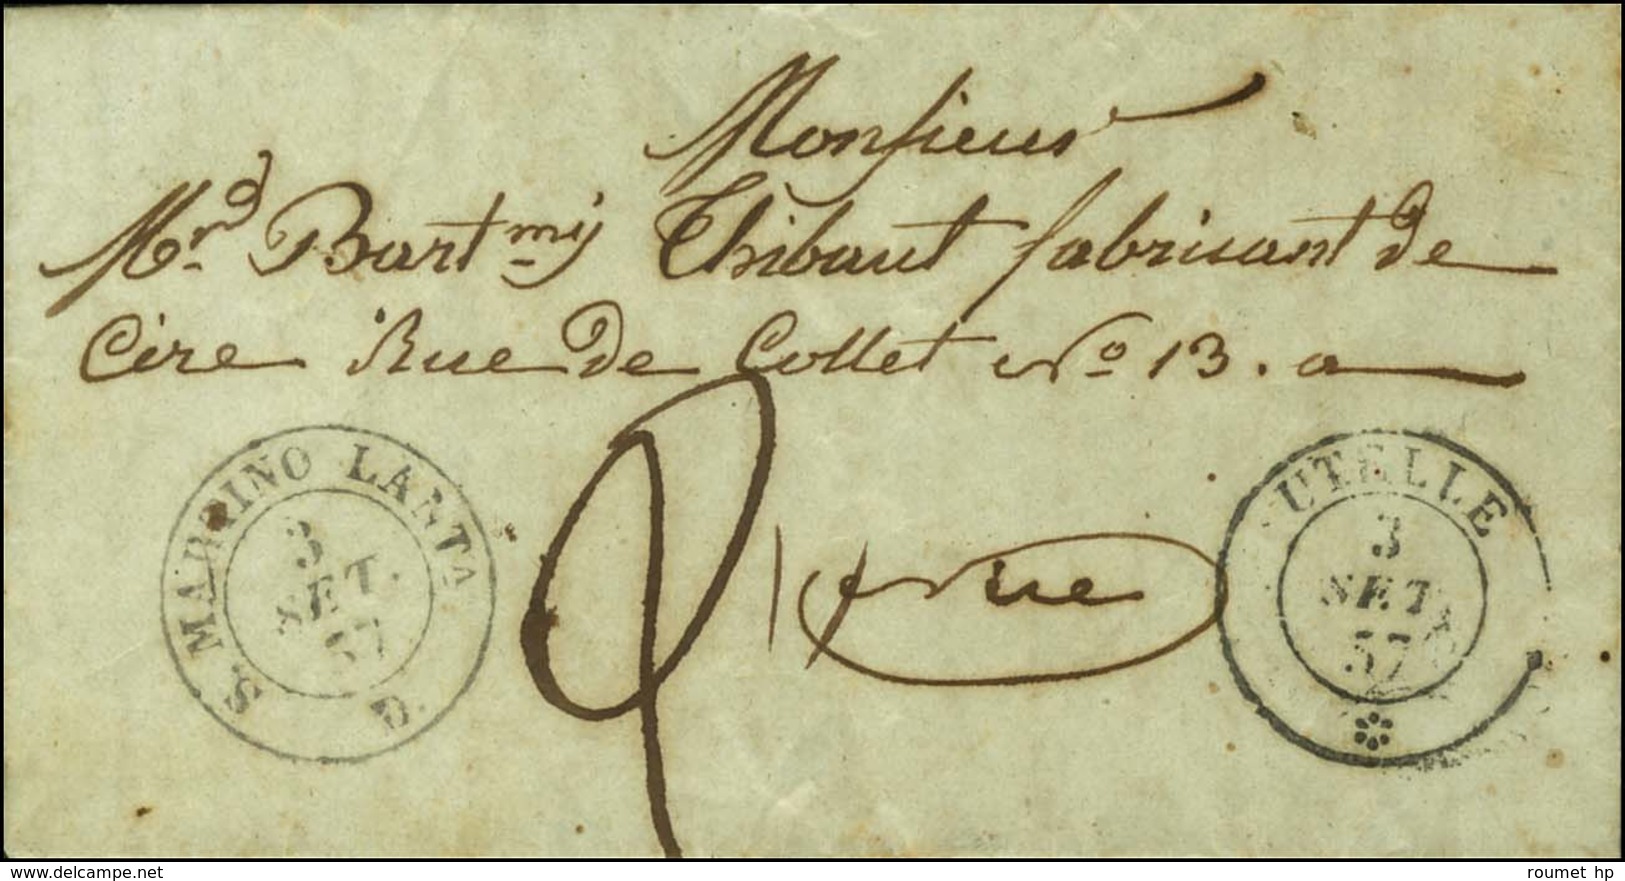 Monsieur
M.rd Bart.my Thibaut fabricant de
Cire Rue de Collet No 13. a
Nice
S. MARTINO LANTA
3
SET.
57
UTELLE
3
SET
57
delcampe.net
roumet hp